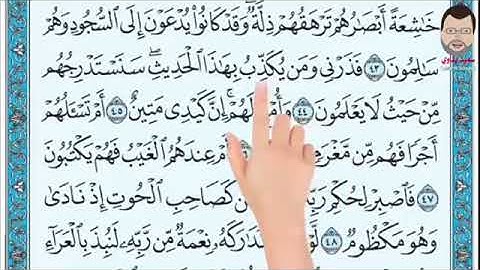 خَٰشِعَةً أَبْصَٰرُهُمْ تَرْهَقُهُمْ ذِلَّةٌ ۖ وَقَدْ كَانُوا۟ يُدْعَوْنَ إِلَى ٱلسُّجُودِ وَهُمْ
سَٰلِمُونَ ٤٣ فَذَرْنِى وَمَن يُكَذِّبُ بِهَٰذَا ٱلْحَدِيثِ ۖ سَنَسْتَدْرِجُهُم
مِّنْ حَيْثُ لَا يَعْلَمُونَ ٤٤ لَهُمْ ۚ إِنَّ كَيْدِى مَتِينٌ ٤٥ أَمْ تَسْـَٔلُهُمْ
أَجْرًا فَهُم مِّن أَمْ عِندَهُمُ ٱلْغَيْبُ فَهُمْ يَكْتُبُونَ
٤٧ فَٱصْبِرْ لِحُكْمِ كَصَاحِبِ ٱلْحُوتِ إِذْ نَادَىٰ
وَهُوَ مَكْظُومٌ ٤٨ نِعْمَةٌ مِّن رَّبِّهِۦ لَنُبِذَ بِٱلْعَرَآءِ